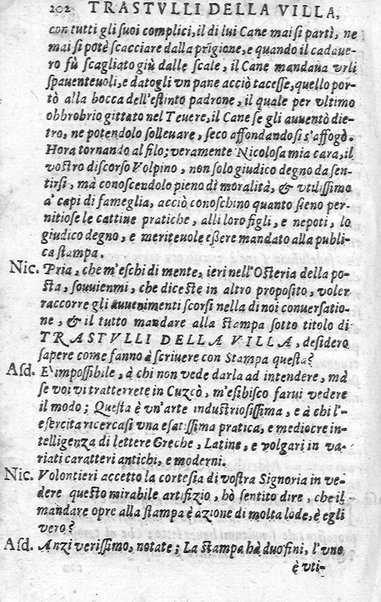 202 TRASTVLLI DELLA VILLA,
con tutti gli suoi complici, il di lui Cane mai si partì, ne
mai si potè scacciare dalla prigione, e quando il cadaue-
ro fù scagliato giù dalle scale, il Cane mandaua vrli
spauenteuoli, e datogli vn pane acciò tacesse, quello por-
tò alla bocca dell'estinto padrone, il quale per vltimo
obbrobrio gittato nel Teuere, il Cane se gli auuentò die-
tro, ne potendolo solleuare, seco affondandosi s'affogò.
Hora tornando al filo; veramente Nicolosa mia cara, il
vostro discorso Volpino, non solo giudico degno da sen-
tirsi, mà conoscendolo pieno di moralità, & vtilissimo
a' capi di fameglia, acciò conoschino quanto sieno per-
nitiose le cattiue pratiche, alli loro figli, e nepoti, lo
giudico degno, e meriteuole essere mandato alla publi-
ca stampa.
Nic. Pria, che m'eschi di mente, ieri nell'Osteria della po-
sta, souuienmi, che diceste in altro proposito, voler
raccorre gli auuenimenti scorsi nella di noi conuersatio-
ne, & il tutto mandare alla stampa sotto titolo di
TRASTVLLI DELLA VILLA, desidero
sapere come fanno à scriuere con Stampa questa?
Asd. E' impossibile, à chi non vede darla ad intendere, mà
se voi vi tratterrete in Cuzcò, m'esibisco farui vedere
il modo; Questa è vn'arte industriosissima, e à chi l'e-
sercita ricercasi vna esatissima pratica, e mediocre in-
telligenza di lettere Greche, Latine, e volgari in va-
riati caratteri antichi, e moderni.
Nic. Volontieri accetto la cortesia di vostra Signoria in ve-
dere questo mirabile artifizio, hò sentito dire, che il
mandare opre alla stampa è azione di molta lode, è egli
vero?
Asd. Anzi verissimo, notate; La Stampa hà duo fini, l'vno
è vti-